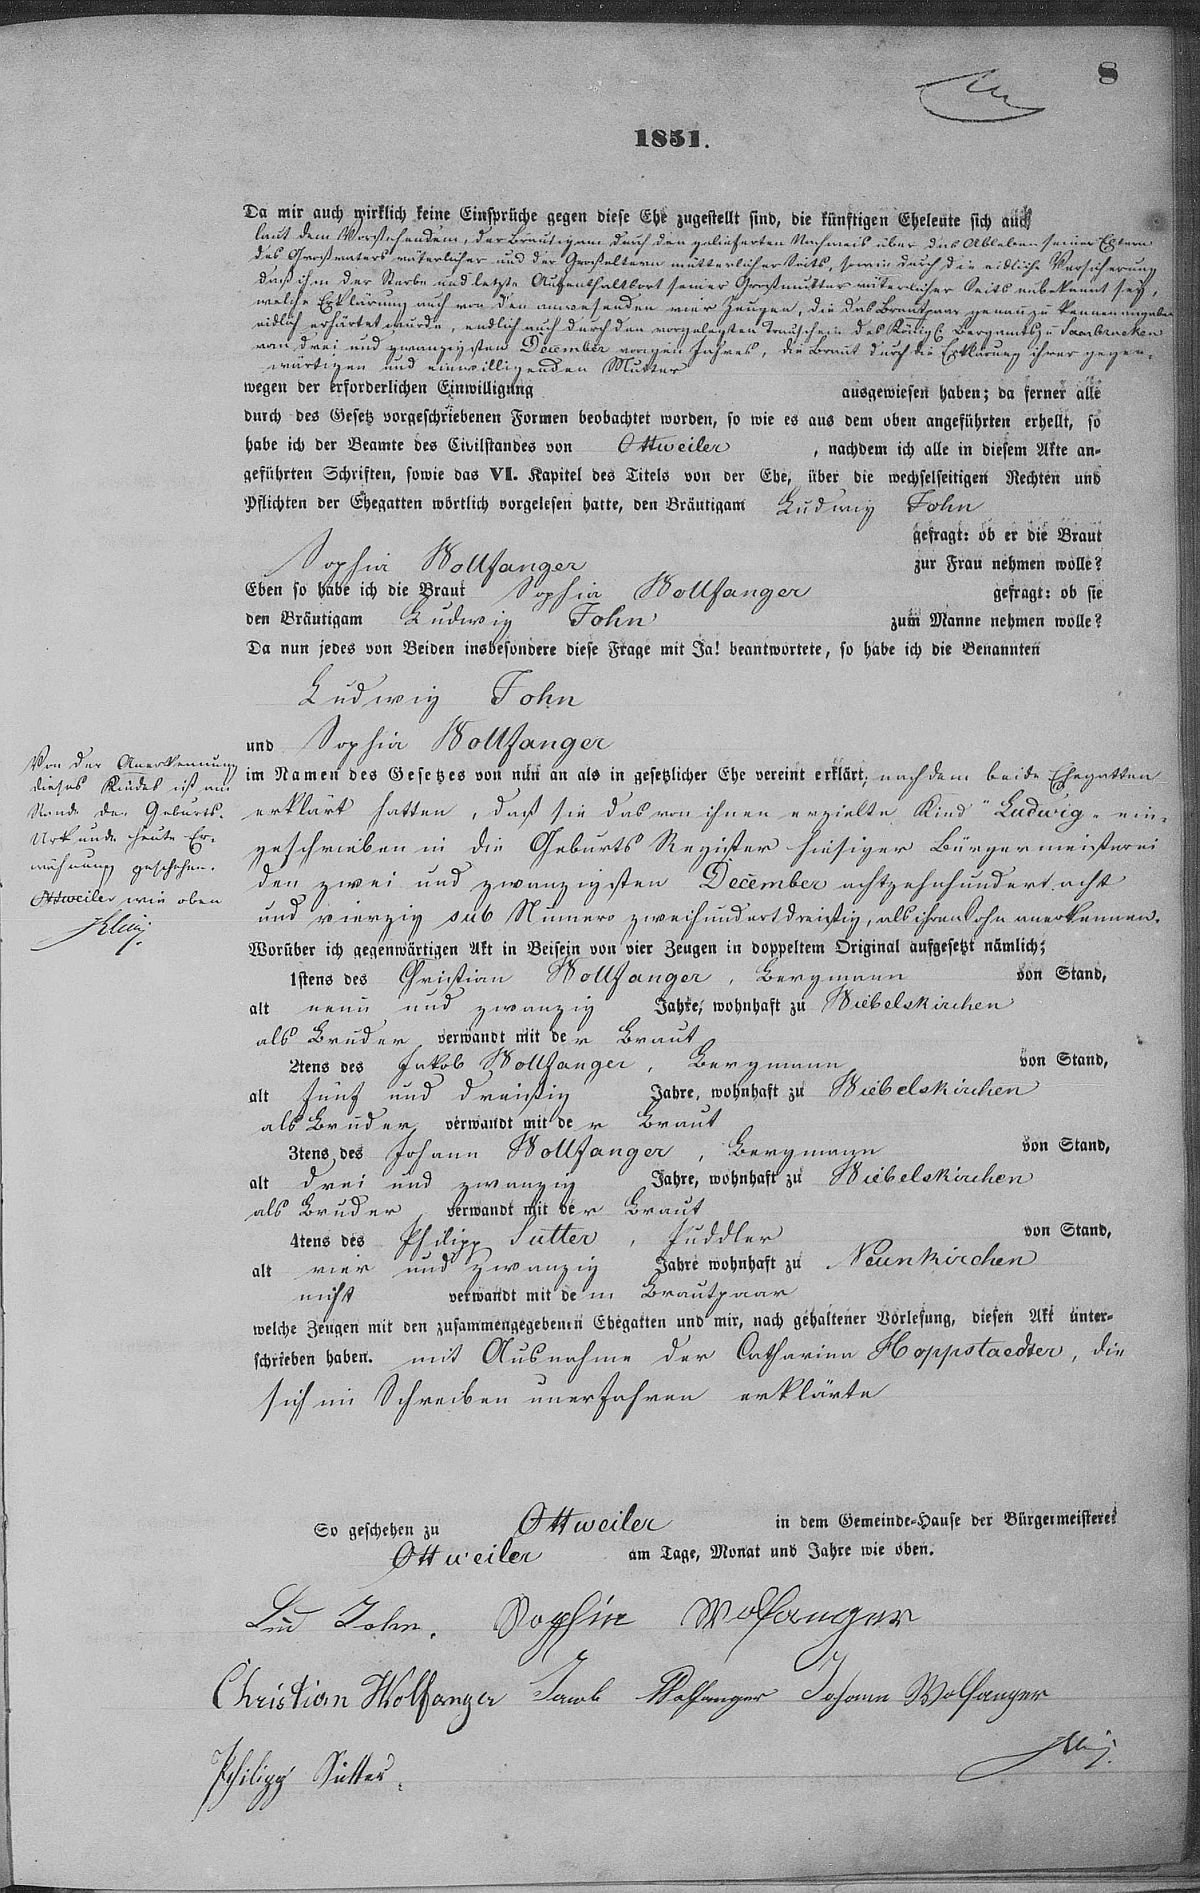 8
1851.
Da mir auch wirklich keine Einsprüche gegen diese Ehe zugestellt sind, die künftigen Eheleute sich auch
laut dem Vorstehendem, der Bräutigam durch den gelieferten Nachweis über das Ableben seiner Eltern
des Großvaters väterlicher und der Großeltern mütterlicher Seits, sowie durch die eidliche Versicherung
daß ihm der Sterbe und letzte Aufenthaltsort seiner Großmutter väterlicher Seits unbekannt sey,
welche Erklärung auch von den anwesenden vier Zeugen, die das Brautpaar genau zu kennen angaben
eidlich erhärtet wurde, endlich auch durch den vorgelegten Trauschein des Königl. Bergamts zu Saarbrücken
vom drei und zwanzigsten December vorigen Jahres, die Braut durch die Erklärung ihrer gegen-
wärtigen und einwilligenden Mutter
wegen der erforderlichen Einwilligung ausgewiesen haben; da ferner alle
durch des Gesetz vorgeschriebenen Formen beobachtet worden, so wie es aus dem oben angeführten erhellt, so
habe ich der Beamte des Civilstandes von Ottweiler , nachdem ich alle in diesem Akte an-
geführten Schriften, sowie das VI. Kapitel des Titels von der Ehe, über die wechselseitigen Rechten und
Pflichten der Ehegatten wörtlich vorgelesen hatte, den Bräutigam Ludwig John
gefragt: ob er die Braut
Sophia Wollfanger zur Frau nehmen wolle?
Eben so habe ich die Braut Sophia Wollfanger gefragt: ob sie
den Bräutigam Ludwig John zum Manne nehmen wolle?
Da nun jedes von Beiden insbesondere diese Frage mit Ja! beantwortete, so habe ich die Benannten
Ludwig John
und Sophia Wollfanger
im Namen des Gesetzes von nun an als in gesetzlicher Ehe vereint erklärt, nachdem beide Ehegatten
erklärt hatten, daß sie das von ihnen erzielte Kind "Ludwig" ein-
geschrieben in die Geburts Register hiesiger Bürgermeisterei
den zwei und zwanzigsten December achtzehnhundert acht
und vierzig sub Numero zweihundertdreißig, als ihren Sohn anerkennen.
Von der Anerkennung
dieses Kindes ist am
Rande der Geburts-
Urkunde heute Er-
wähnung geschehen.
Ottweiler wie oben
Worüber ich gegenwärtigen Akt in Beisein von vier Zeugen in doppeltem Original aufgesetzt nämlich;
1stens des Christian Wollfanger, Bergmann von Stand,
alt neun und zwanzig Jahre, wohnhaft zu Wiebelskirchen
als Bruder verwandt mit der Braut
2tens des Jakob Wollfanger, Bergmann von Stand,
alt fünf und dreißig Jahre, wohnhaft zu Wiebelskirchen
als Bruder verwandt mit der Braut
3tens des Johann Wollfanger, Bergmann von Stand,
alt drei und zwanzig Jahre, wohnhaft zu Wiebelskirchen
als Bruder verwandt mit der Braut
4tens des Philipp Sutter, Puddler von Stand,
alt vier und zwanzig Jahre wohnhaft zu Neunkirchen
nicht verwandt mit dem Brautpaar
welche Zeugen mit den zusammengegebenen Ehegatten und mir, nach gehaltener Vorlesung, diesen Akt unter-
schrieben haben. mit Ausnahme der Catharina Hoppstaedter, die
sich im Schreiben unerfahren erklärte
So geschehen zu Ottweiler in dem Gemeinde-Hause der Bürgermeisterei
Ottweiler am Tage, Monat und Jahre wie oben.
Lud John. Sophia Wolfanger
Christian Wolfanger Jacob Wolfanger Johann Wolfanger
Philipp Sutter.